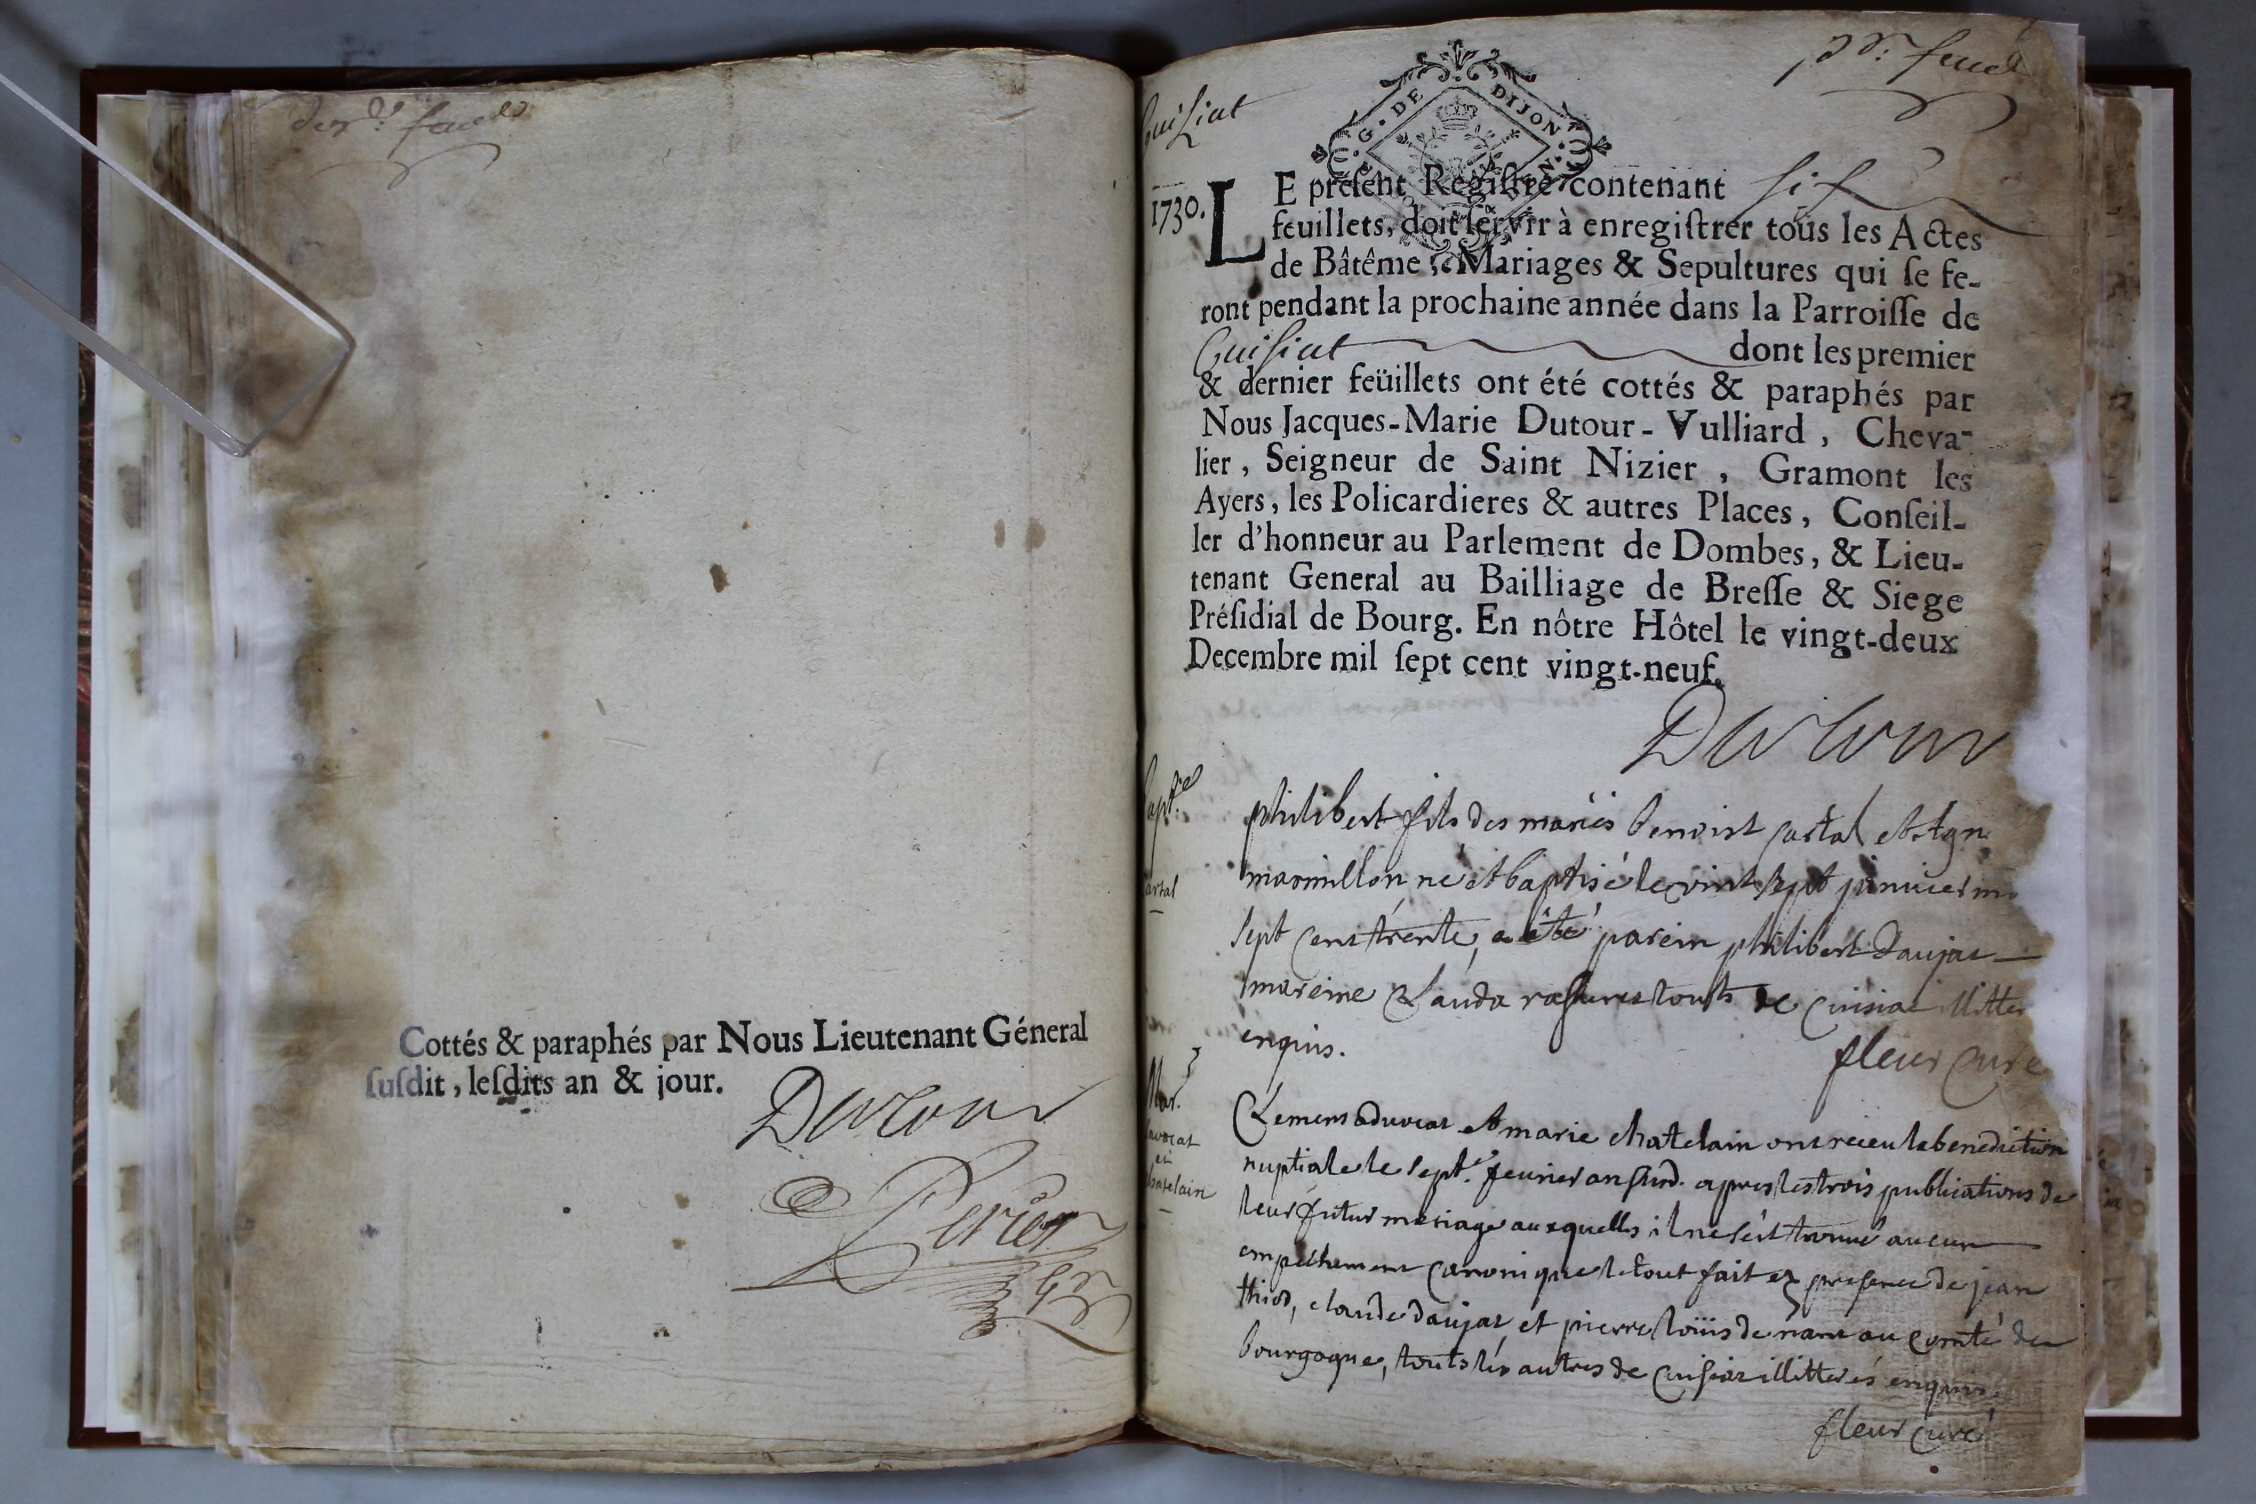 der.r feuillet
Cottés & paraphés par Nous Lieutenant Géneral
ſuſdit, leſdits an & jour.
Dutour
Perier
Cuisiat
pr. feuil
G. DE DIJON
1730.
LE preſent Regiſtre contenant six
feuillets, doit ſervir à enregiſtrer tous les Actes
de Bâtême, Mariages & Sepultures qui ſe fe-
ront pendant la prochaine année dans la Parroiſſe de
Cuisiat dont les premier
& dernier feüillets ont été cottés & paraphés par
Nous Jacques-Marie Dutour-Vulliard, Cheva-
lier, Seigneur de Saint Nizier, Gramont les
Ayers, les Policardieres & autres Places, Conſeil-
ler d'honneur au Parlement de Dombes, & Lieu-
tenant General au Bailliage de Breſſe & Siege
Préſidial de Bourg. En nôtre Hôtel le vingt-deux
Decembre mil ſept cent vingt-neuf.
Dutour
Bapt.e
philibert fils des mariés benoist castal et
marmillon né et baptisé le vint sept januier
sept cens trente, a êté parein philibert daujat
mareine Clauda touts de cuisiat illitter
enquis.
fleur curé
Mar.
avocat
et
chatelain
Clemens aduocat et marie chatelain ont receu la benediction
nuptiale le sept.e feurier an susd. apres les trois publications de
leur futur mariage auxquelles il ne s'est trouué aucun
empechement canonique le tout fait en presence de jean
thiod, claude daujat et pierre loüis de nant au comté de
bourgogne, touts les autres de cuisiat illitterés enquis.
fleur curé